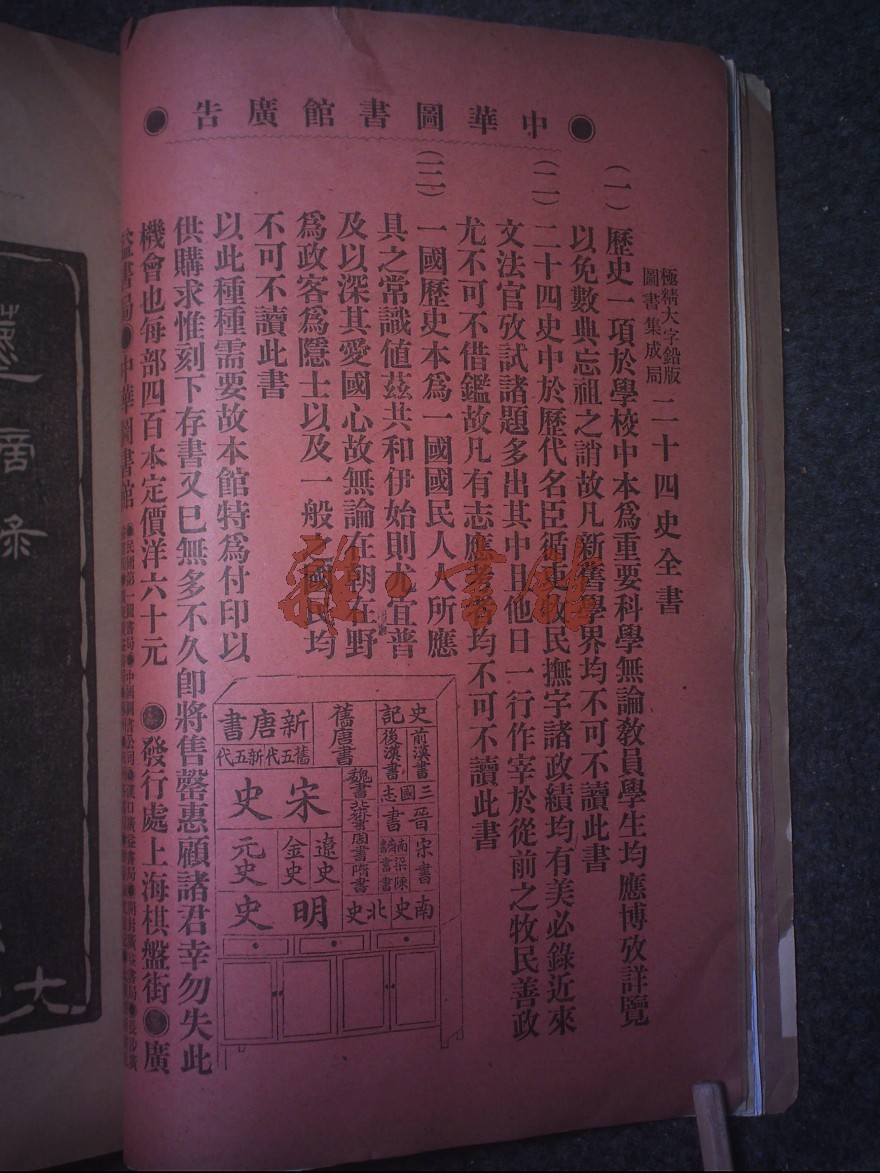 中華圖書館廣告
極精大字鉛版
圖書集成局
二十四史全書
(一)歷史一項於學校中本爲重要科學無論敎員學生均應博攷詳覽
以免數典忘祖之誚故凡新舊學界均不可不讀此書
(二)二十四史中於歷代名臣循吏牧民撫字諸政績均有美必錄近來
文法官攷試諸題多出其中且他日一行作宰於從前之牧民善政
尤不可不借鑑故凡有志應考者均不可不讀此書
(三)一國歷史本爲一國國民人人所應
具之常識値茲共和伊始則尤宜普
及以深其愛國心故無論在朝在野
爲政客爲隱士以及一般之國民均
不可不讀此書
以此種種需要故本館特爲付印以
供購求惟刻下存書又已無多不久卽將售罄惠顧諸君幸勿失此
機會也每部四百本定價洋六十元 ●發行處上海棋盤街●廣
益書局●中華圖書館
史記
前漢書
後漢書
三國志
晉書
宋書
南齊書
梁書
陳書
南史
北史
魏書
北齊書
周書
隋書
舊唐書
新唐書
舊五代
新五代
宋史
遼史
金史
元史
明史
雜·書館